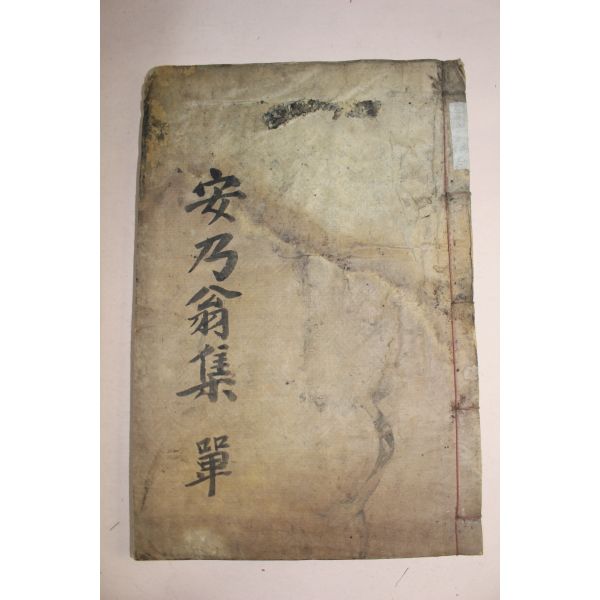 安乃翁集 單